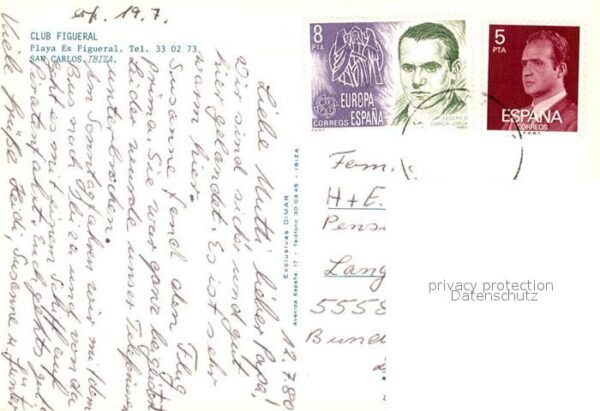 erh. 19.7.
CLUB FIGUERAL
Playa Es Figueral. Tel. 33 02 73
SAN CARLOS. IBIZA.
12.7.80
Liebe Mutti, lieber Papa,
wir sind sicher und gut
hier gelandet. Es ist sehr
warm hier.
Susanne fand den Flug
Prima. Sie war ganz begeistert.
Leider wurde unser Telefonieren
unterbrochen.
Am Sonntag fahren wir mit dem
Bus nach Ibiza und von da
mit einem Schiff auf
Piratenfahrt. Euch geht's gut
Viele Grüße Hedi, Susanne u. Günter
Exclusivas DIMAR
Avenida España, 17 - Teléfono 30 03 45 - IBIZA
8
PTA
EUROPA
ESPAÑA
CORREOS
FEDERICO
GARCIA LORCA
1980
5
PTA
ESPAÑA
CORREOS
Fam.
H+E.
Pensi
Lang
5558
Bund
privacy protection
Datenschutz